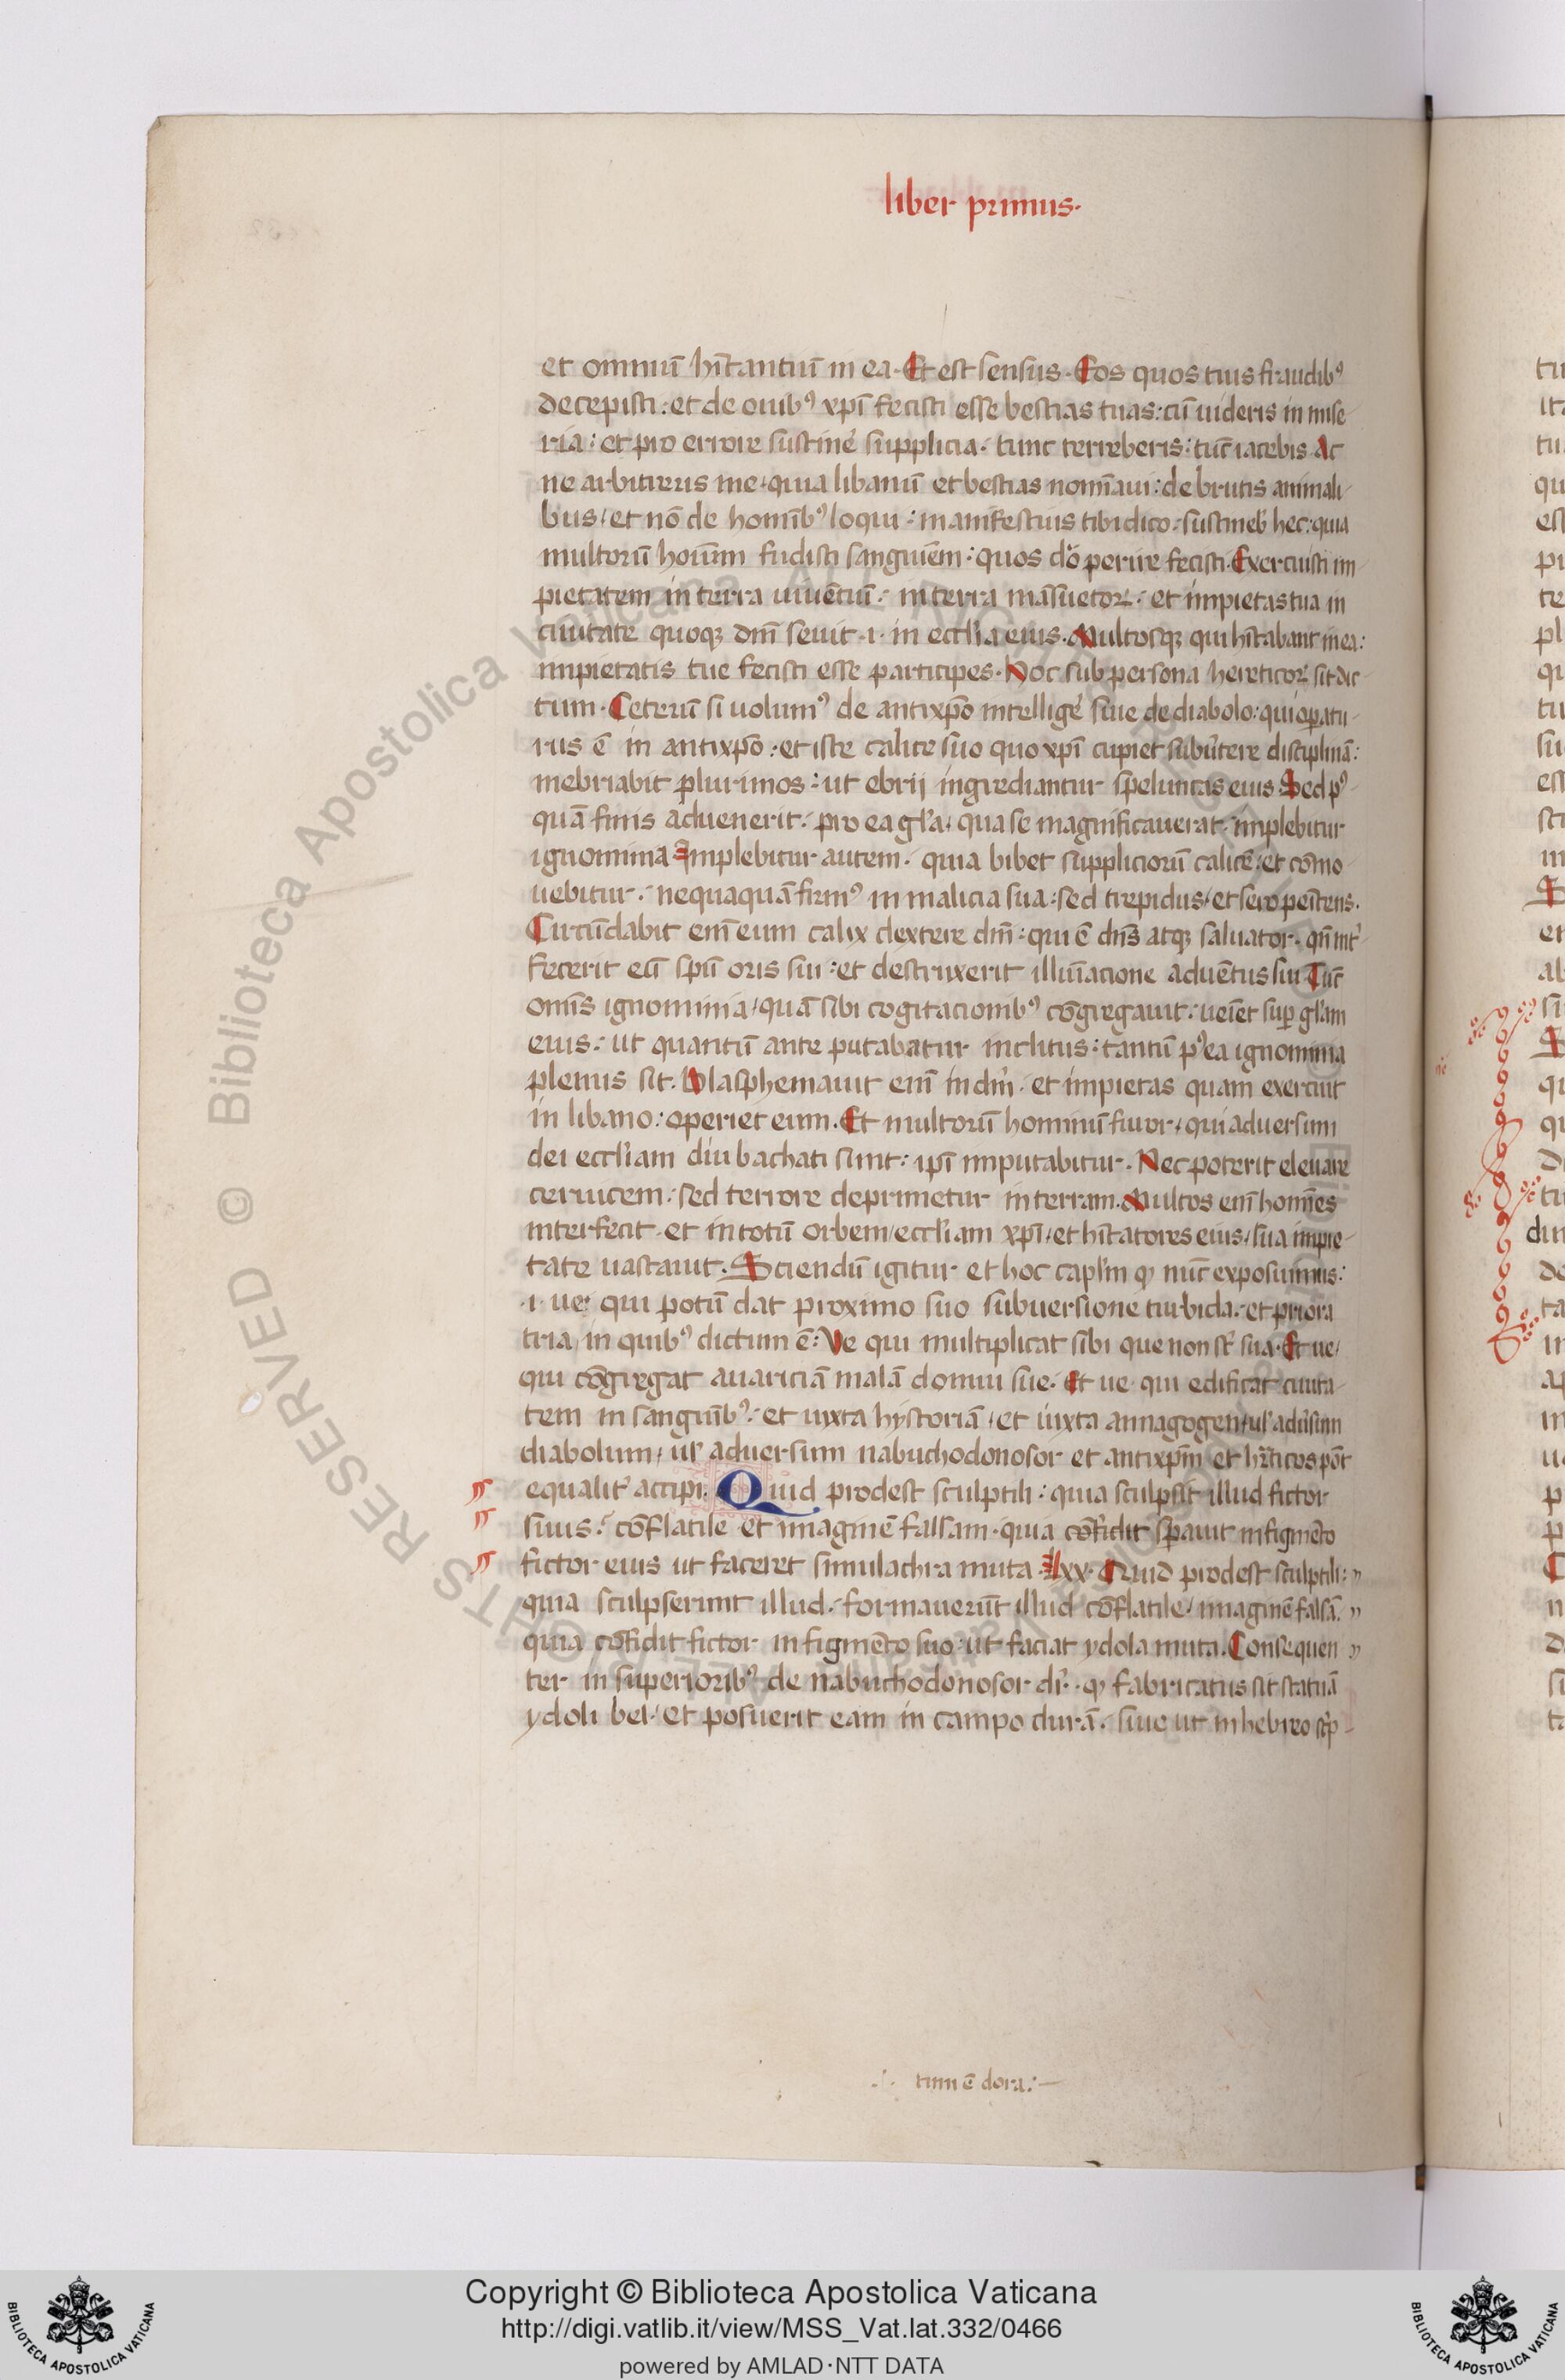 liber primus.
et omniũ hĩtantiũ in ea. Et est sensus. Eos quos tuis fraudibꝰ
decepisti: et de ouibꝰ xp̃i fecisti esse bestias tuas: cũ uideris in mise-
ria: et pro errore sustineꝛ̃ supplicia. tunc terreberis: tũc iacebis. Ac
ne arbitreris me, quia libanũ et bestias nomĩaui: de brutis animali-
bus, et nõ de homĩbꝰ loqui: manifestius tibi dico. sustineb̃ hec: quia
multorũ hoĩum fudisti sanguiẽm: quos perire fecisti. Exercuisti im-
pietatem in terra uiuẽtiũ. in terra mãsuetoꝝ. et impietas tua in
ciuitate quoqꝫ dñi seuit .i. in eccl'ia eius. Multosqꝫ qui hĩtabant in ea:
impietatis tue fecisti esse participes. Hoc sub persona hereticoꝝ sit dic-
tum. Ceterũ si uolumꝰ de antixp̃o intelligeꝛ̃ siue de diabolo: qui oꝑatu-
rus ẽ in antixp̃o: et iste calice suo quo xp̃i cupiet subũtere disciplinã:
inebriabit plurimos: ut ebrij ingrediantur speluncas eius. Sed pꝰ-
quã finis aduenerit. pro ea gl'a, qua se magnificauerat. implebitur
ignominia. Implebitur autem. quia bibet suppliciorũ calicẽ: et cõmo-
uebitur. nequaquã firmꝰ in malicia sua: sed trepidus, et sero peñtens.
Circũdabit eñi eum calix dextere dñi: qui ẽ dñs atqꝫ saluator. qñ int̃-
fecerit eũ sp̃u oris sui: et destruxerit illuĩacione aduẽtus sui. Tũc
oñis ignominia, quã sibi cogitacionibꝰ cõgregauit: ueĩet suꝑ gl'am
eius: ut quantũ ante putabatur inclitus: tantũ pꝰea ignominia
plenus sit. Blasphemauit eñi in dñi. et impietas quam exercuit
in libano: operiet eum. Et multorũ hominũ furor, qui aduersum
dei eccl'iam diu bachati sunt: ip̃i imputabitur. Nec poterit eleuare
ceruicem. sed terrore deprimetur in terram. Multos eñi homĩes
interfecit. et in totũ orbem, eccl'iam xp̃i, et hĩtatores eius, sua impie-
tate uastauit. Sciendũ igitur et hoc capl'm ꝙ nũc exposuimus:
.i. ue qui potũ dat proximo suo subuersione turbida. et priora
tria, in quibꝰ dictum ẽ: Ve qui multiplicat sibi que non st̃ sua. Et ue,
qui cõgregat auariciã malã domui sue. Et ue qui edificat ciuita-
tem in sanguĩbꝰ. et iuxta hystoriã, et iuxta annagogen, ul' adũsum
diabolum, ul' aduersum nabuchodonosor et antixp̃m et hr̃ticos põt
equalit̃ accipi. Quid prodest sculptili: quia sculpsit illud fictor
suus. cõflatile et imaginẽ falsam. quia cõfidit sꝑauit in figmẽto
fictor eius ut faceret simulachra muta. lxx. Quid prodest sculptili:
quia sculpserunt illud. formauerũt illud cõflatile, imaginẽ falsã.
quia cõfidit fictor in figmẽto suo: ut faciat ydola muta. Consequen-
ter in superioribꝰ de nabuchodonosor dr̃. ꝙ fabricatus sit statuã
ydoli bel, et posuerit eam in campo durã. siue ut in hebreo sc̃p-
tum ẽ dora:
Copyright © Biblioteca Apostolica Vaticana
http://digi.vatlib.it/view/MSS_Vat.lat.332/0466
powered by AMLAD·NTT DATA